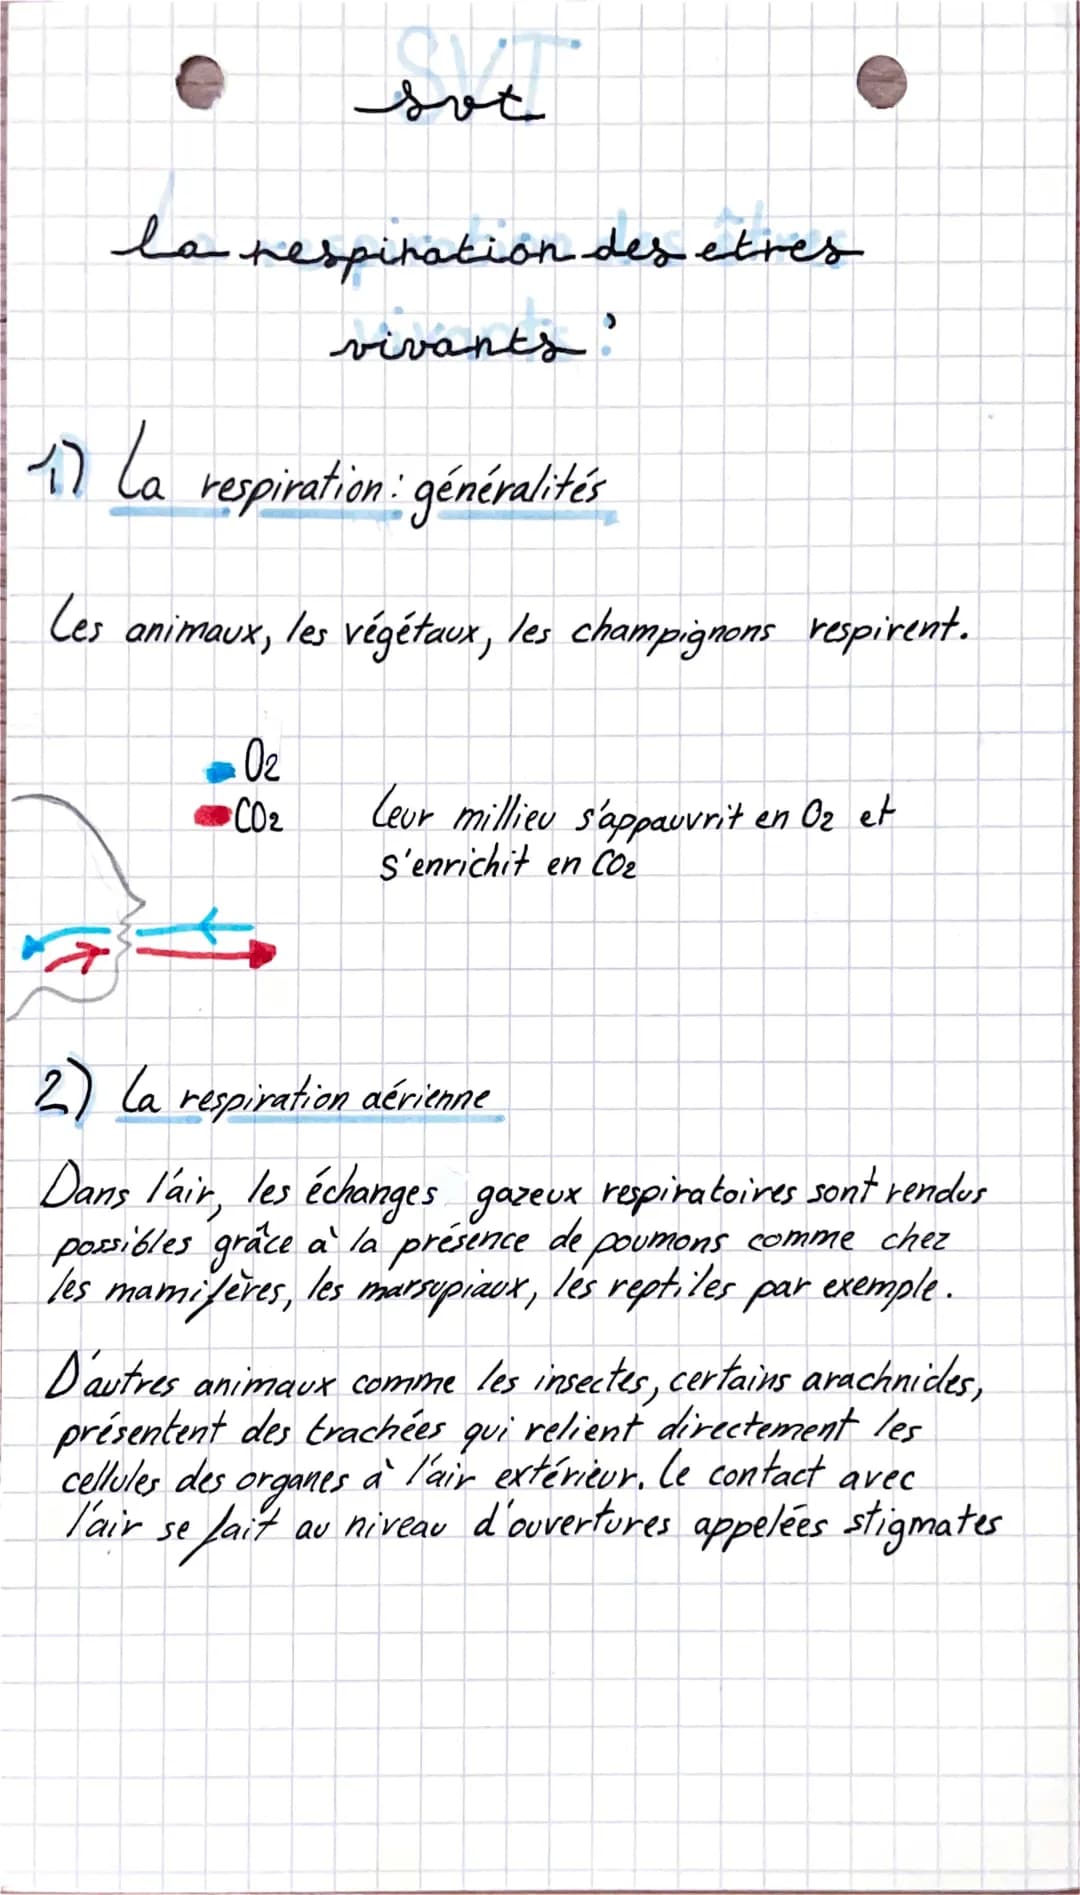 svt
la respiration des etres
vivants :
1) La respiration : généralités
Les animaux, les végétaux, les champignons respirent.
O2
CO2
Leur millieu s'appauvrit en O2 et
s'enrichit en CO2
2) La respiration aérienne
Dans l'air, les échanges gazeux respiratoires sont rendus
possibles grâce à la présence de poumons comme chez
les mamifères, les marsupiaux, les reptiles par exemple.
D'autres animaux comme les insectes, certains arachnides,
présentent des trachées qui relient directement les
cellules des organes à l'air extérieur. Le contact avec
l'air se fait au niveau d'ouvertures appelées stigmates